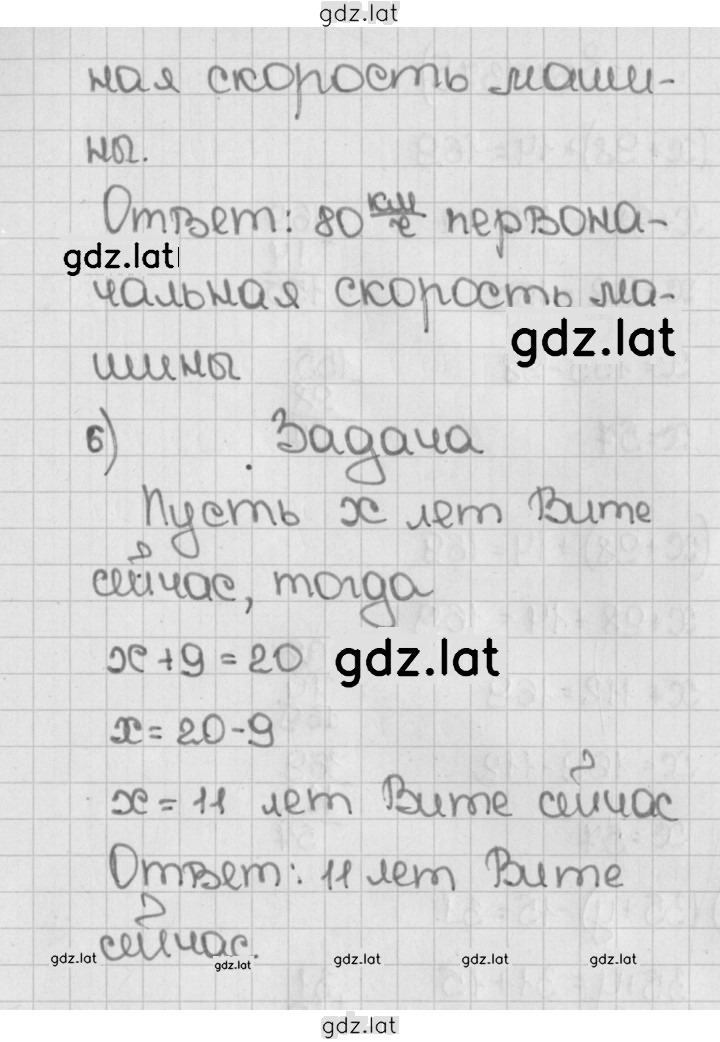 gdz.lat
ная скорость маши-
ны.
Ответ: 80 км/ч первона-
gdz.lat
чальная скорость ма-
gdz.lat
шины
б) Задача
Пусть x лет Вите
сейчас, тогда
x + 9 = 20 gdz.lat
x = 20 - 9
x = 11 лет Вите сейчас
Ответ: 11 лет Вите
сейчас.
gdz.lat gdz.lat gdz.lat gdz.lat gdz.lat
gdz.lat